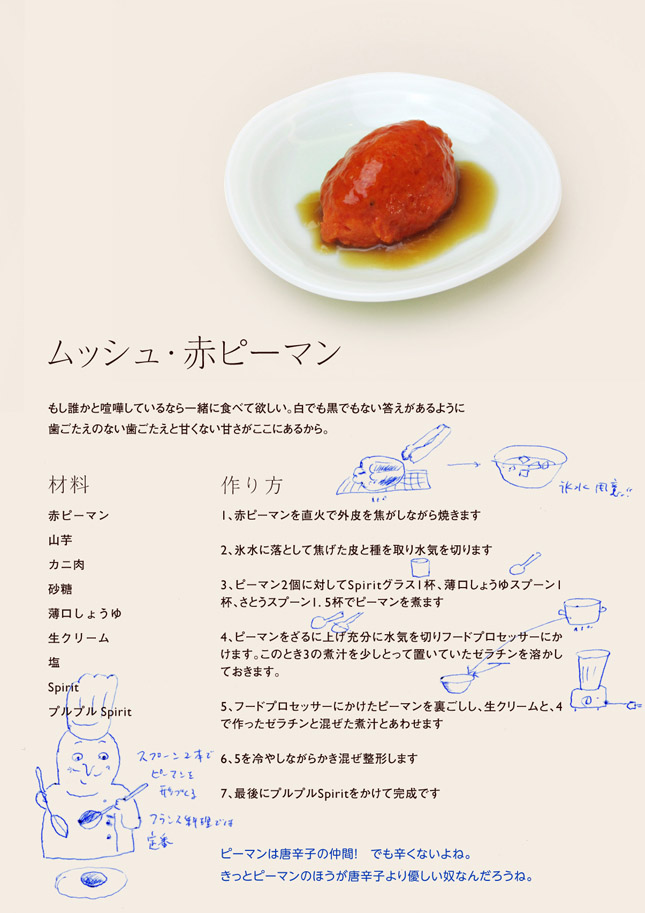 ムッシュ・赤ピーマン
もし誰かと喧嘩しているなら一緒に食べて欲しい。白でも黒でもない答えがあるように
歯ごたえのない歯ごたえと甘くない甘さがここにあるから。
材料
赤ピーマン
山芋
カニ肉
砂糖
薄口しょうゆ
生クリーム
塩
Spirit
プルプル Spirit
作り方
氷水用意!!
1、赤ピーマンを直火で外皮を焦がしながら焼きます
2、氷水に落として焦げた皮と種を取り水気を切ります
3、ピーマン2個に対してSpiritグラス1杯、薄口しょうゆスプーン1
杯、さとうスプーン1.5杯でピーマンを煮ます
4、ピーマンをざるに上げ充分に水気を切りフードプロセッサーにか
けます。このとき3の煮汁を少しとって置いていたゼラチンを溶かし
ておきます。
5、フードプロセッサーにかけたピーマンを裏ごしし、生クリームと、4
で作ったゼラチンと混ぜた煮汁とあわせます
6、5を冷やしながらかき混ぜ整形します
7、最後にプルプルSpiritをかけて完成です
スプーン2本で
ピーマンを
形づくる
フランス料理では
定番
ピーマンは唐辛子の仲間!　でも辛くないよね。
きっとピーマンのほうが唐辛子より優しい奴なんだろうね。